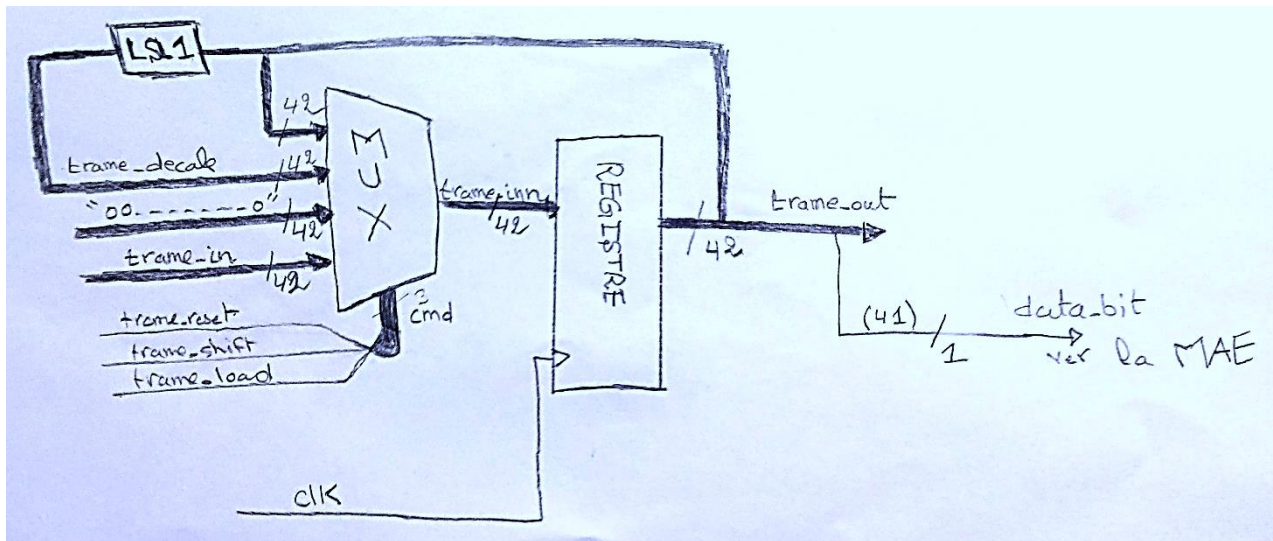 LSL1
42
trame_decale
42
"00-------0"
42
trame_in
42
MUX
trame_reset
trame_shift
trame_load
3
cmd
trame_inn
42
REGISTRE
clk
42
trame_out
(41)
1
data_bit
ver la MAE